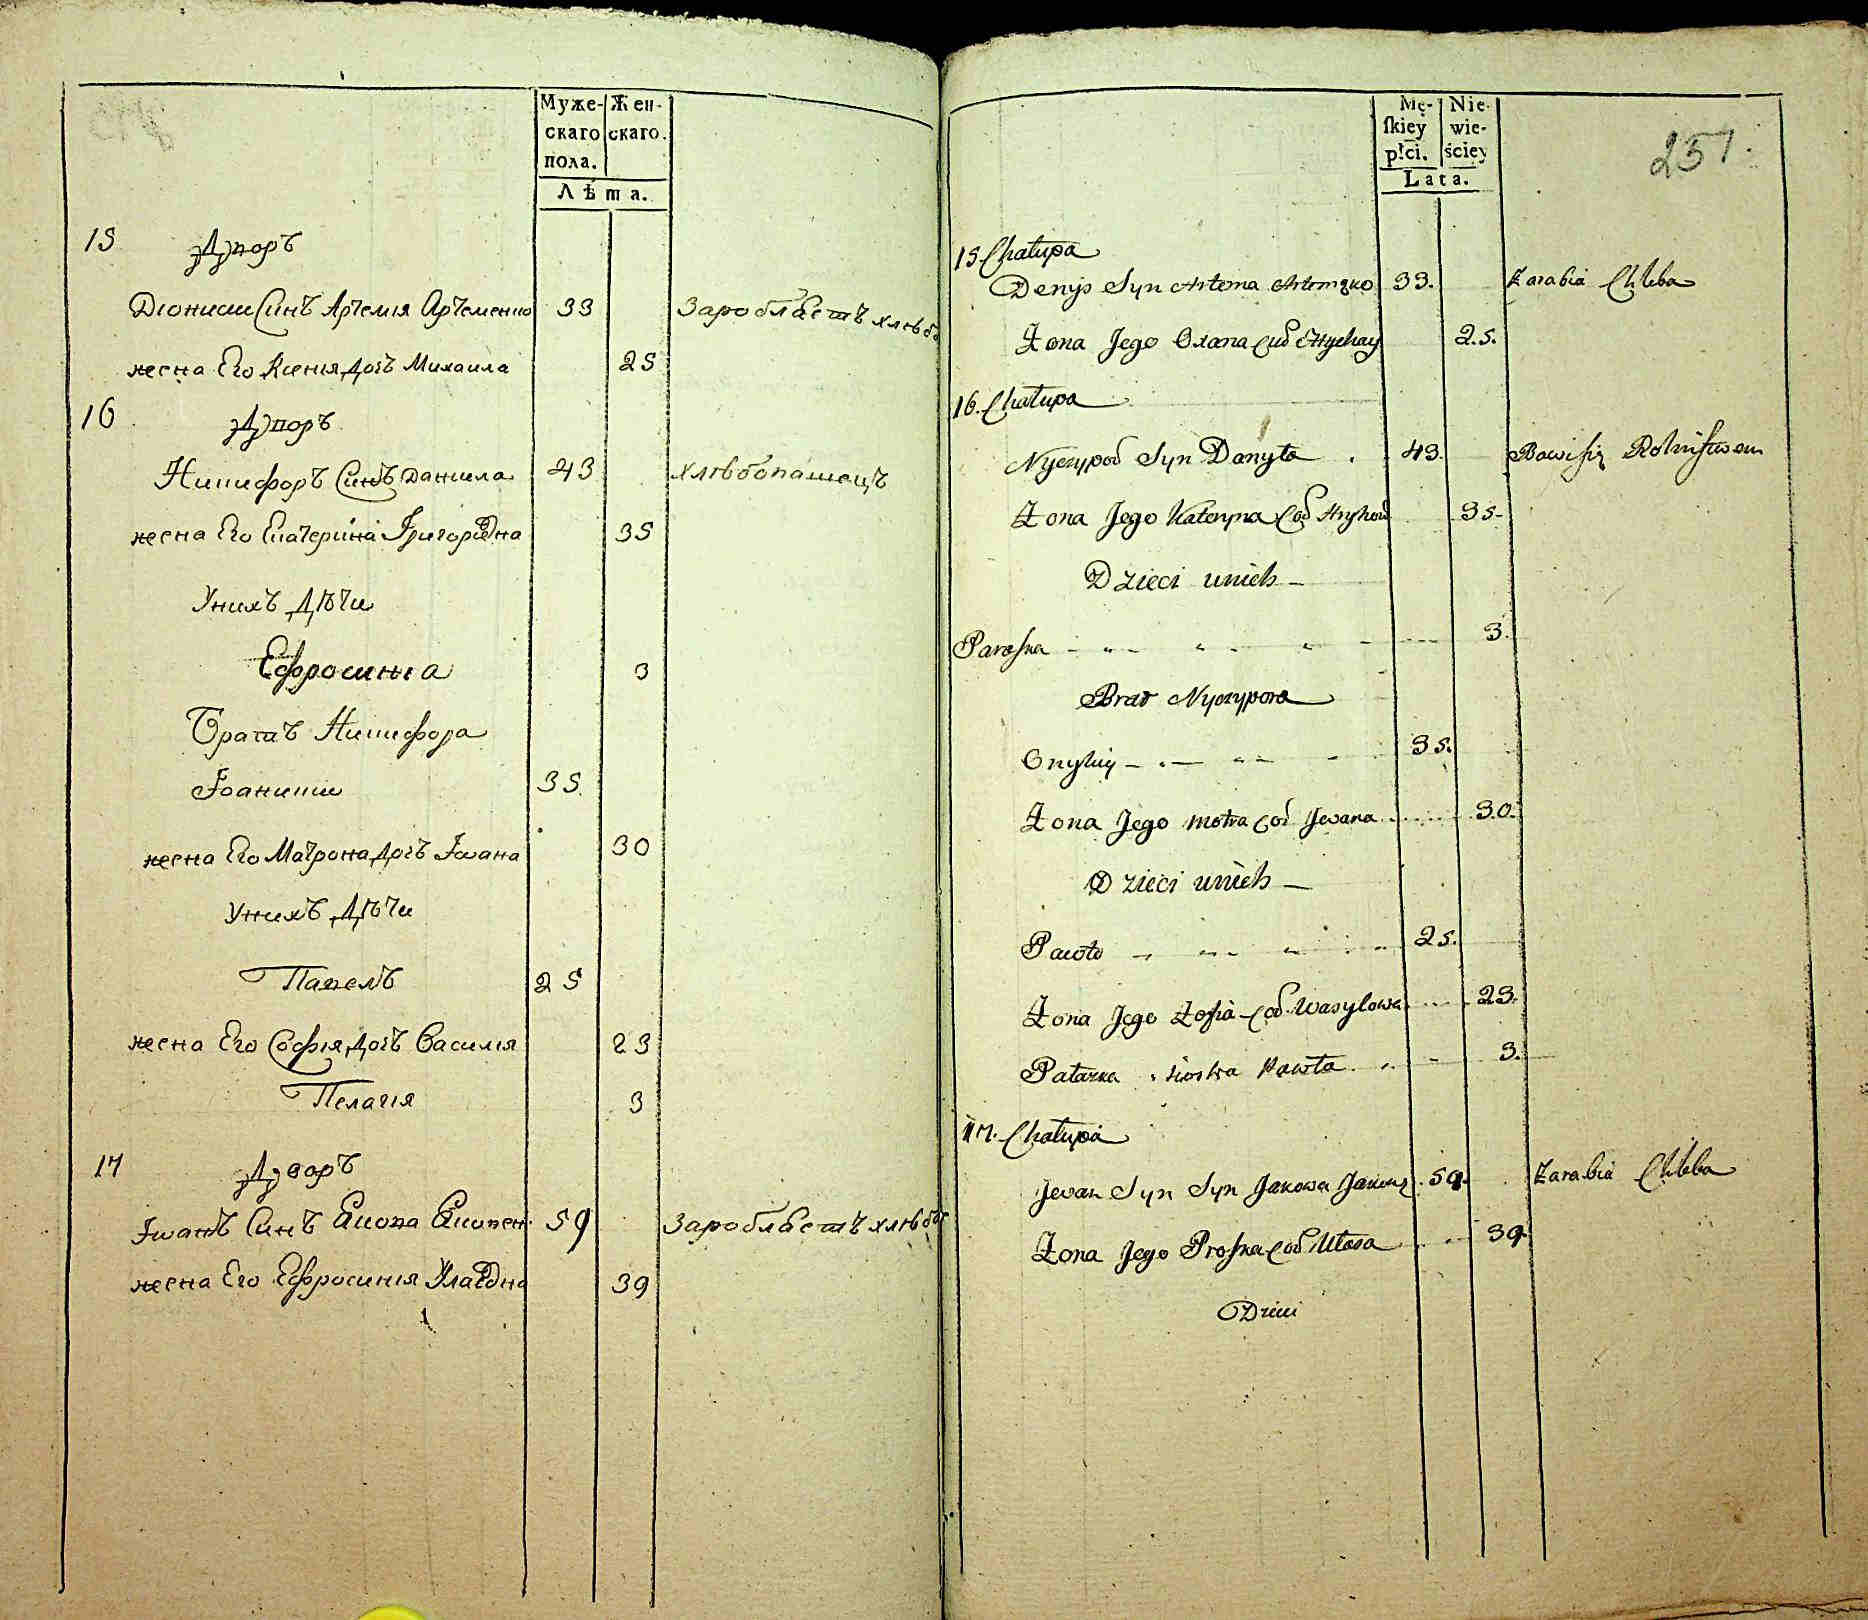 Муже- Жен-
скаго скаго.
пола.
Лѣта.
15 Дворъ
Діонисіи Синъ Артемія Артеменко 33 Заробляетъ хлѣба
жена Его Ксенія дочь Михаила 25
16 Дворъ
Никифоръ Синъ Данила 43 хлѣбопашецъ
жена Его Екатерина Григорова 35
У нихъ дѣти
Ефросинія 3
Братъ Никифора
Іоаникии 35
жена Его Матрона дочь Іоана 30
У нихъ дѣти
Павелъ 25
жена Его Софія дочь Василія 23
Пелагія 3
17 Дворъ
Іоанъ Синъ 59 Заробляетъ хлѣба
жена Его Ефросинія 39
Mę- Nie-
ſkiey wie-
płci. ściey
Lata.
257.
15 Chałupa
Denys Syn Artema 33. Zarabia Chleba
Żona Jego Oxana Cud 25.
16. Chałupa
Nyczypor Syn Danyła 43. Bawi się Rolnictwem
Żona Jego Kateryna Cod 35.
Dzieci u nich
Paraſka 3.
Brat Nyczypora
Onyſkiy 35.
Żona Jego Motra Cod Jwana 30.
Dzieci u nich
Pawło 25.
Żona Jego Zofia Cod Wasylowa 23.
Palazka siostra Pawła 3.
17. Chałupa
Jwan Syn Syn Jakowa 59. Zarabia Chleba
Żona Jego Proſka Cod Ułasa 39.
Dzieci